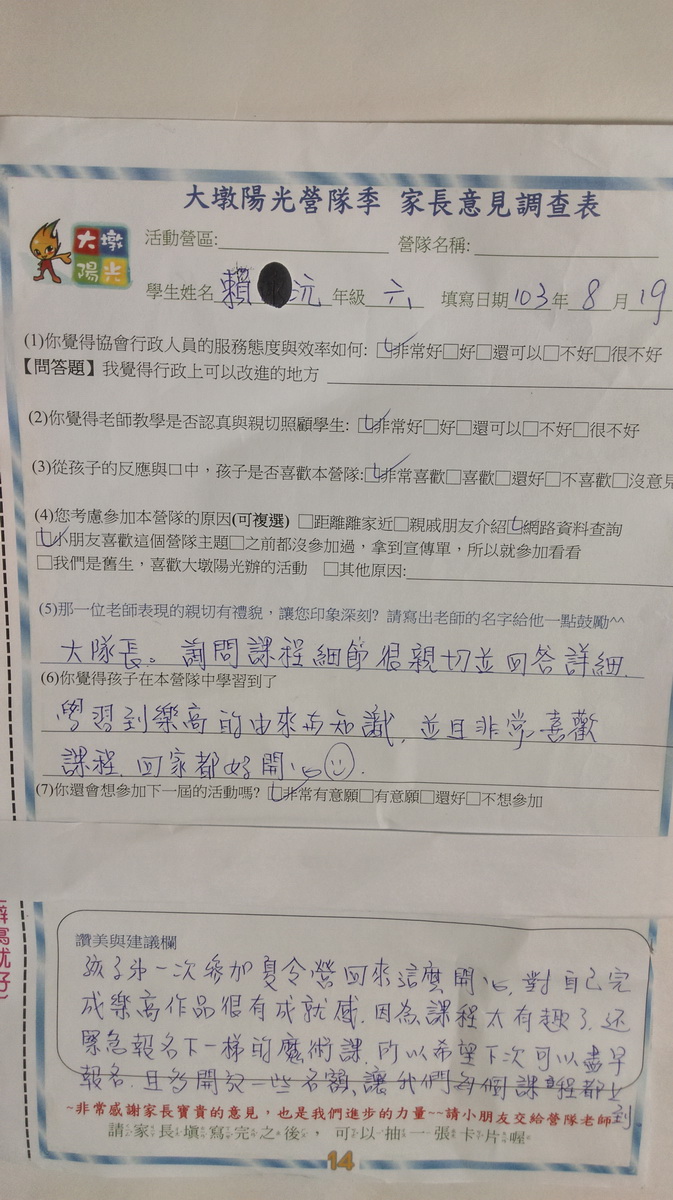 大墩陽光營隊季 家長意見調查表
大墩
陽光
活動營區: 營隊名稱:
學生姓名 賴 沅 年級 六 填寫日期 103 年 8 月 19
(1)你覺得協會行政人員的服務態度與效率如何: □非常好□好□還可以□不好□很不好
【問答題】我覺得行政上可以改進的地方
(2)你覺得老師教學是否認真與親切照顧學生: □非常好□好□還可以□不好□很不好
(3)從孩子的反應與口中，孩子是否喜歡本營隊:□非常喜歡□喜歡□還好□不喜歡□沒意見
(4)您考慮參加本營隊的原因(可複選) □距離離家近□親戚朋友介紹□網路資料查詢
□小朋友喜歡這個營隊主題□之前都沒參加過，拿到宣傳單，所以就參加看看
□我們是舊生，喜歡大墩陽光辦的活動 □其他原因:
(5)那一位老師表現的親切有禮貌，讓您印象深刻? 請寫出老師的名字給他一點鼓勵^^
大隊長。詢問課程細節很親切並回答詳細.
(6)你覺得孩子在本營隊中學習到了
學習到樂高的由來與知識, 並且非常喜歡
課程, 回家都好開心☺.
(7)你還會想參加下一屆的活動嗎? □非常有意願□有意願□還好□不想參加
辭寫就好)
讚美與建議欄
孩子第一次參加夏令營回來這麼開心, 對自己完
成樂高作品很有成就感, 因為課程太有趣了, 還
緊急報名下一梯的魔術課, 所以希望下次可以盡早
報名, 且多開放一些名額, 讓我們每個課程都上
到
~非常感謝家長寶貴的意見，也是我們進步的力量~~請小朋友交給營隊老師
請家長填寫完之後，可以抽一張卡片喔
14